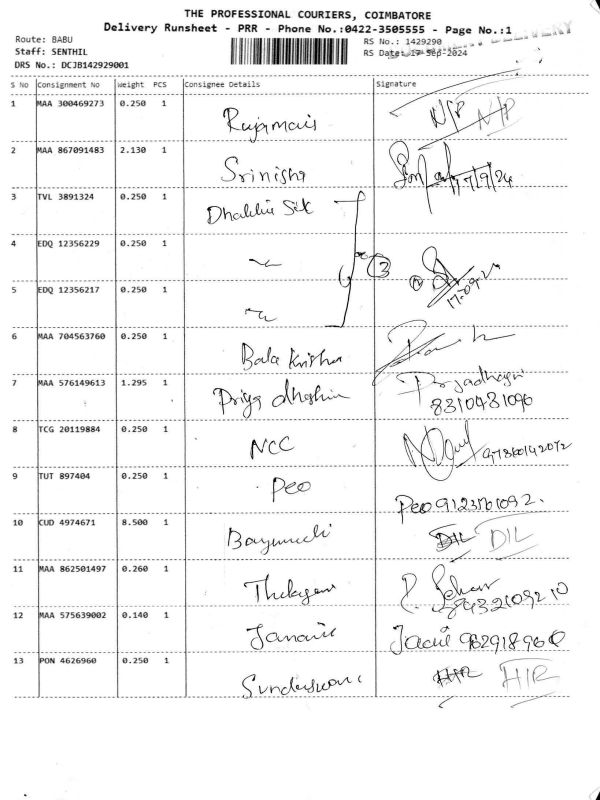 THE PROFESSIONAL COURIERS, COIMBATORE
Delivery Runsheet - PRR - Phone No.:0422-3505555 - Page No.:1
Route: BABU
RS No.: 1429290
Staff: SENTHIL
RS Date: 17-Sep-2024
DRS No.: DCJB142929001
S No Consignment No Weight PCS Consignee Details Signature
1 MAA 300469273 0.250 1 N/P N/P
2 MAA 867091483 2.130 1 Srinisha 17/9/24
3 TVL 3891324 0.250 1
4 EDQ 12356229 0.250 1 3
5 EDQ 12356217 0.250 1
6 MAA 704563760 0.250 1 Bala Krisha
7 MAA 576149613 1.295 1 Priya
8310481096
8 TCG 20119884 0.250 1 NCC
9 TUT 897404 0.250 1 Peo
Peo 9123761092.
10 CUD 4974671 8.500 1 DIL DIL
11 MAA 862501497 0.260 1
12 MAA 575639002 0.140 1
13 PON 4626960 0.250 1 HIR HIR